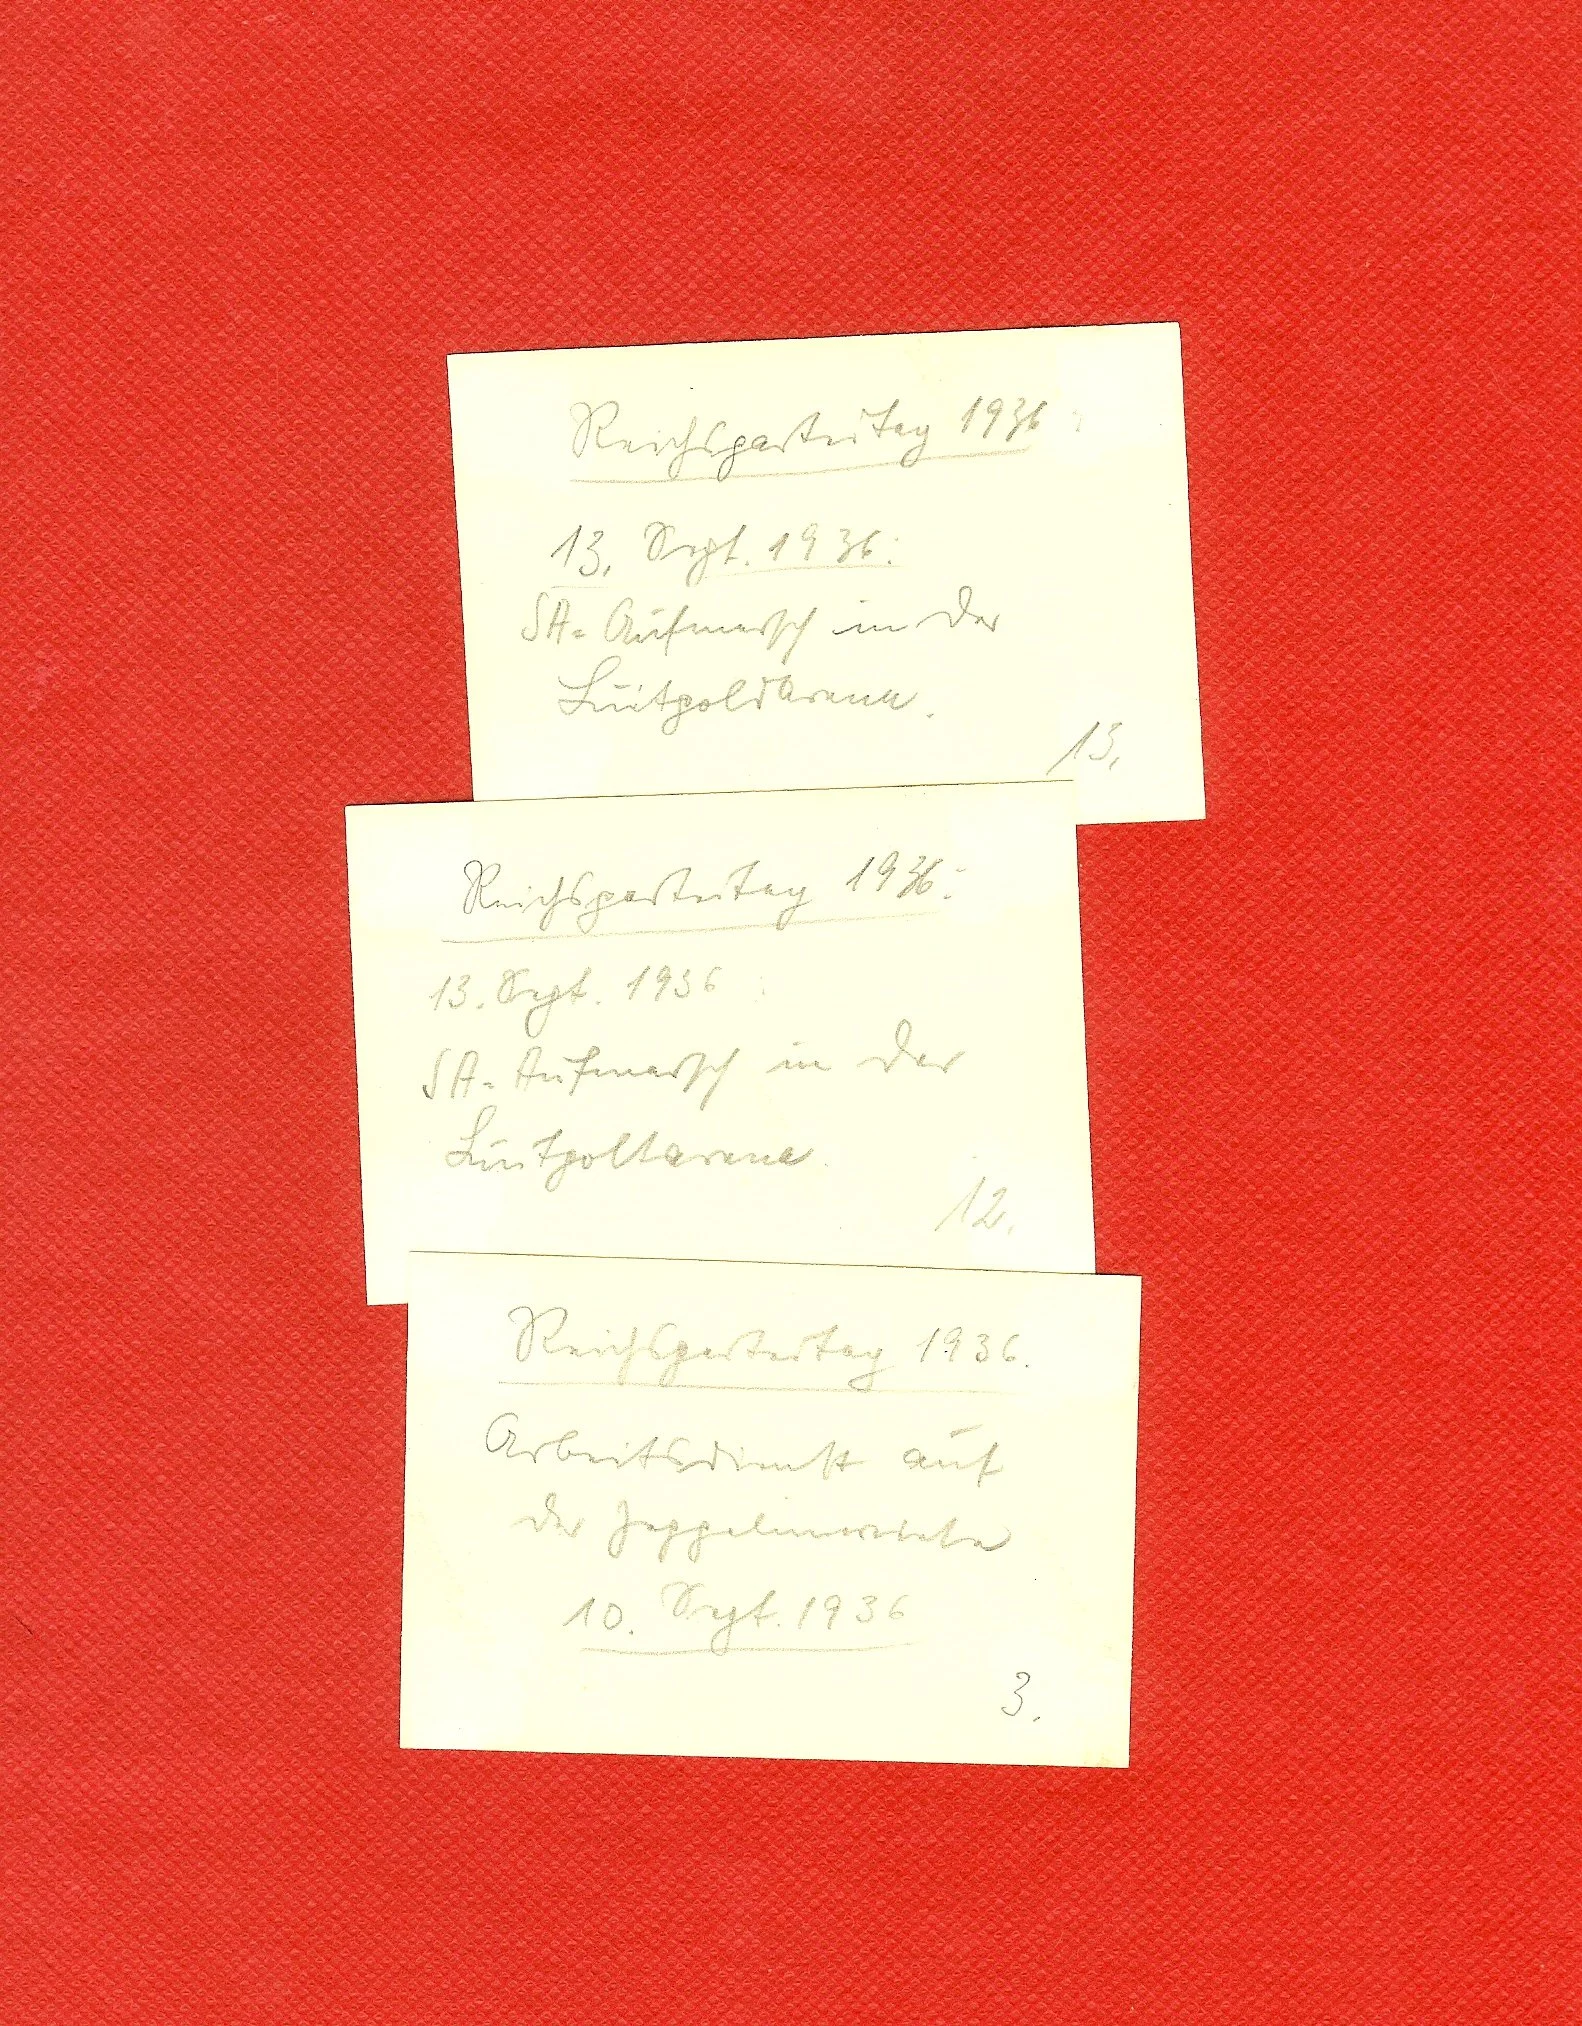 Reichsparteitag 1936:
13. Sept. 1936:
SA-Aufmarsch in der
Luitpoldarena.
13.
Reichsparteitag 1936:
13. Sept. 1936:
SA-Aufmarsch in der
Luitpoltarena.
12.
Reichsparteitag 1936.
Arbeitsdienst auf
der Zeppelinwiese
10. Sept. 1936
3.